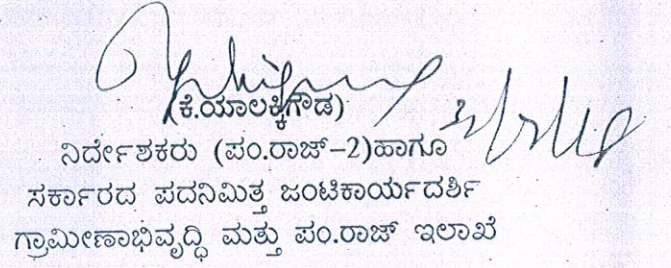 (ಕೆ.ಯಾಲಕ್ಕಿಗೌಡ)
ನಿರ್ದೇಶಕರು (ಪಂ.ರಾಜ್-2)ಹಾಗೂ
ಸರ್ಕಾರದ ಪದನಿಮಿತ್ತ ಜಂಟಿಕಾರ್ಯದರ್ಶಿ
ಗ್ರಾಮೀಣಾಭಿವೃದ್ಧಿ ಮತ್ತು ಪಂ.ರಾಜ್ ಇಲಾಖೆ